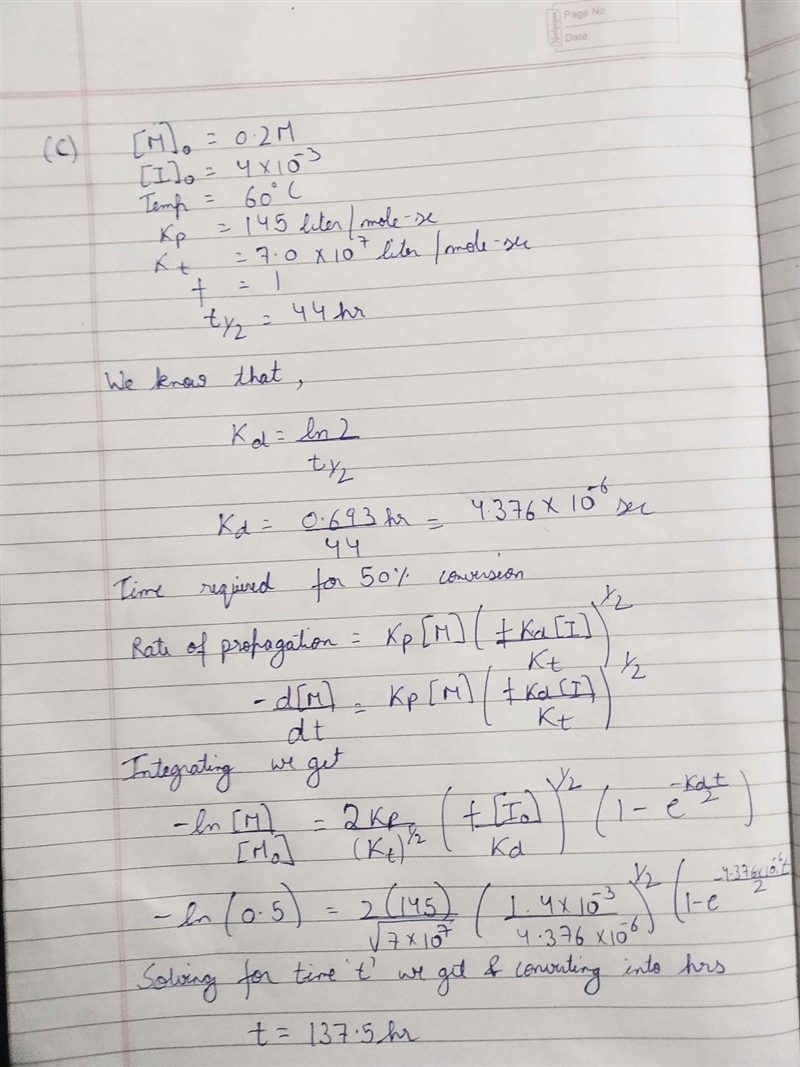 Page No.
Date
(C) [M]₀ = 0.2M
[I]₀ = 4×10⁻³
Temp = 60°C
Kp = 145 liter/mole-se
Kt = 7.0 ×10⁷ liter/mole-sec
f = 1
t½ = 44 hr
We know that,
Kd = ln2 / t½
Kd = 0.693 hr / 44 = 4.376 × 10⁻⁶ sec
Time required for 50% conversion
Rate of propagation = Kp[M] (f Kd[I] / Kt)^½
-d[M] / dt = Kp[M] (f Kd[I] / Kt)^½
Integrating we get
-ln [M] / [M₀] = 2Kp / (Kt)^½ (f [I₀] / Kd)^½ (1 - e^(-Kdt/2))
-ln (0.5) = 2(145) / √7×10⁷ (1.4×10⁻³ / 4.376 ×10⁻⁶)^½ (1-e^(-4.376×10⁻⁶t/2)
Solving for time 't' we get & converting into hrs
t = 137.5 hr